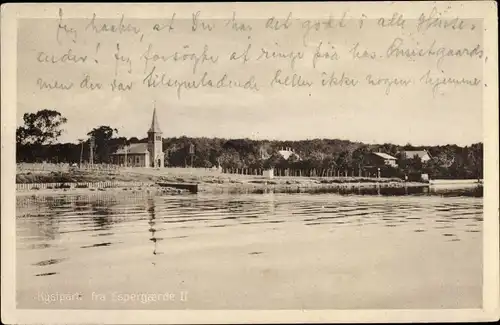 Jeg haaber, at Du har det godt i alle Henseender! Jeg
forsøgte af ringe paa hos Kristgaards,
men der var tilsyneladende heller ikke nogen hjemme.
Kystparti fra Espergærde II